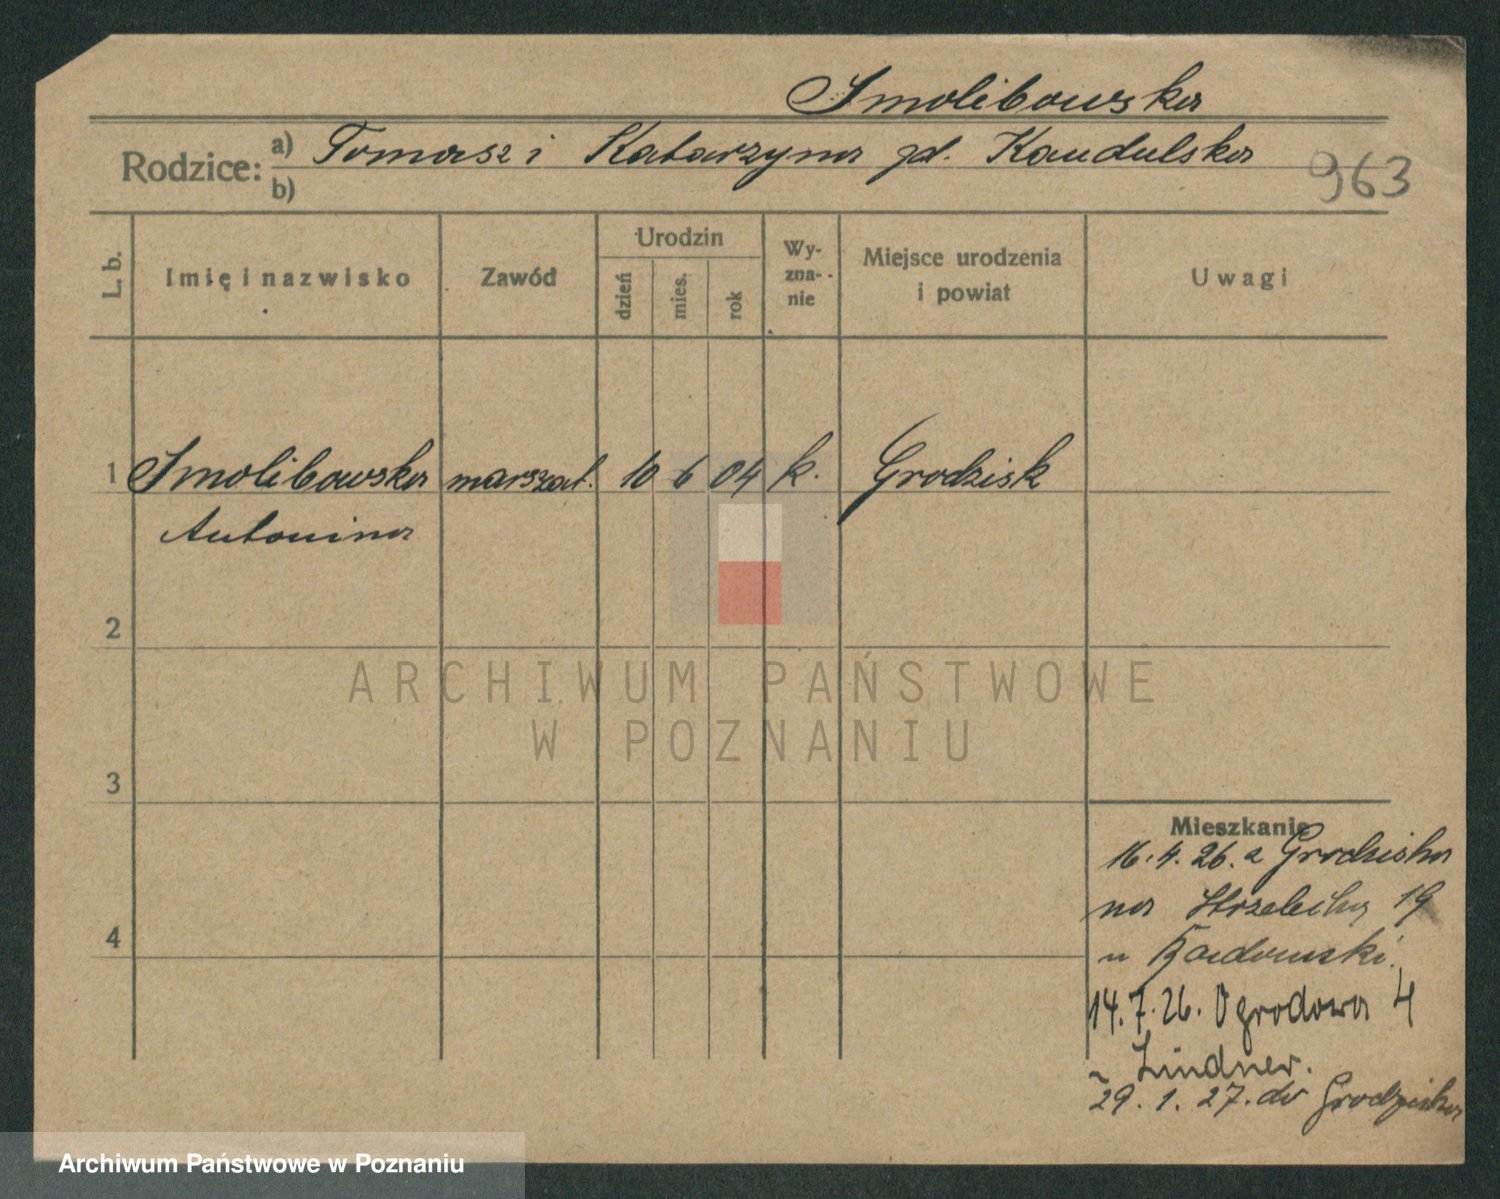 Smolibowska
Rodzice: a) Tomasz i Katarzyna zd. Kaudulska
b)
963
L. b.
Imię i nazwisko
Zawód
Urodzin
dzień
mies.
rok
Wy-
zna-
nie
Miejsce urodzenia
i powiat
Uwagi
1 Smolibowska marszat. 10 6 04 k. Grodzisk
Antonina
2
3
4
Mieszkanie
16.4.26. z Grodziska
na 19
u
14.7.26. Ogrodowa 4
u Lindner.
29.1.27. do Grodziska
ARCHIWUM PAŃSTWOWE
W POZNANIU
Archiwum Państwowe w Poznaniu